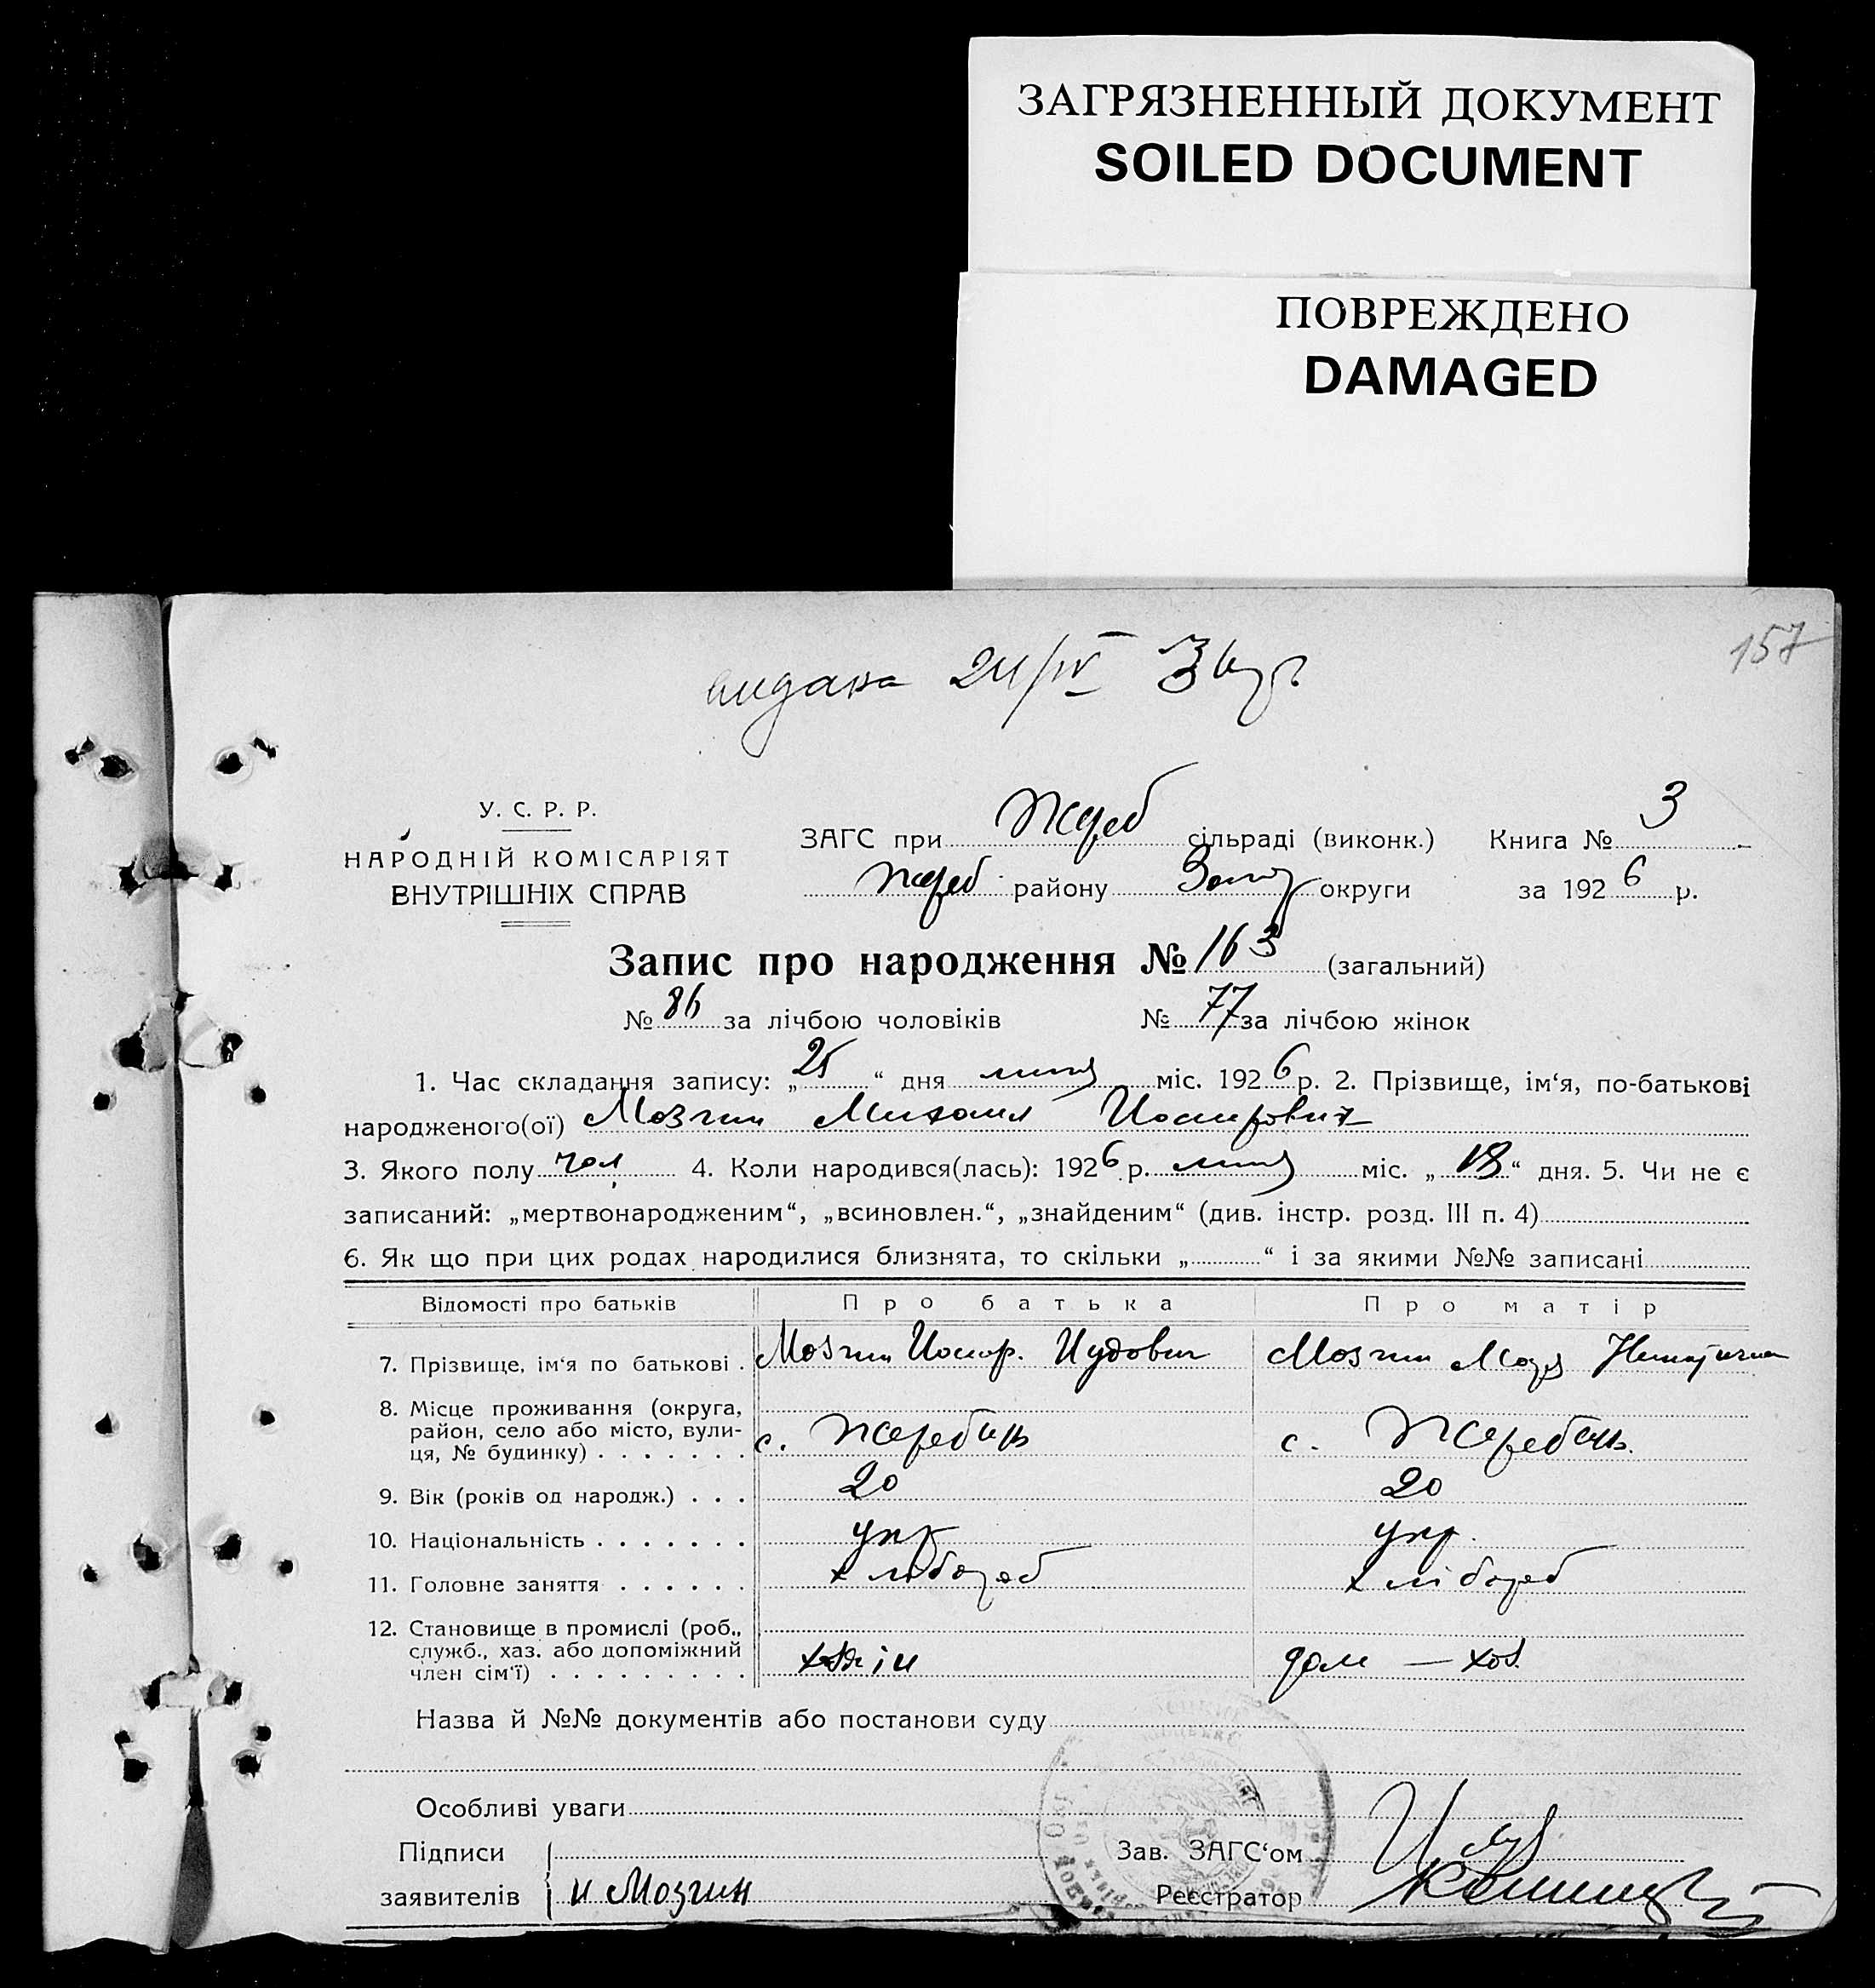 ЗАГРЯЗНЕННЫЙ ДОКУМЕНТ
SOILED DOCUMENT
ПОВРЕЖДЕНО
DAMAGED
157
видана 24/IV
У. С. Р. Р.
НАРОДНІЙ КОМІСАРІЯТ
ВНУТРІШНІХ СПРАВ
ЗАГС при Жереб сільраді (виконк.) Книга № 3
Жереб району округи за 1926 р.
Запис про народження № 163 (загальний)
№ 86 за лічбою чоловіків № 77 за лічбою жінок
1. Час складання запису: „25“ дня липня міс. 1926 р. 2. Прізвище, ім‘я, по-батькові
народженого(ої) Мозгин Михаил Иосифович
3. Якого полу чол 4. Коли народився(лась): 1926 р. липня міс. „18“ дня. 5. Чи не є
записаний: „мертвонародженим“, „всиновлен.“, „знайденим“ (див. інстр. розд. III п. 4)
6. Як що при цих родах народилися близнята, то скільки „ “ і за якими №№ записані
Відомості про батьків Про батька Про матір
7. Прізвище, ім‘я по батькові . Мозгин Иосиф. Иудович Мозгин
8. Місце проживання (округа,
район, село або місто, вули-
ця, № будинку) . . . . . . . с. Жеребець с. Жеребець.
9. Вік (років од народж.) . . . 20 20
10. Національність . . . . . . . укр укр.
11. Головне заняття . . . . . . хлібороб хлібороб
12. Становище в промислі (роб.,
служб., хаз. або допоміжний
член сім‘ї) . . . . . . . . . дом — хоз.
Назва й №№ документів або постанови суду
Особливі уваги
Підписи
заявителів И Мозгин
Зав. ЗАГС‘ом
Реєстратор